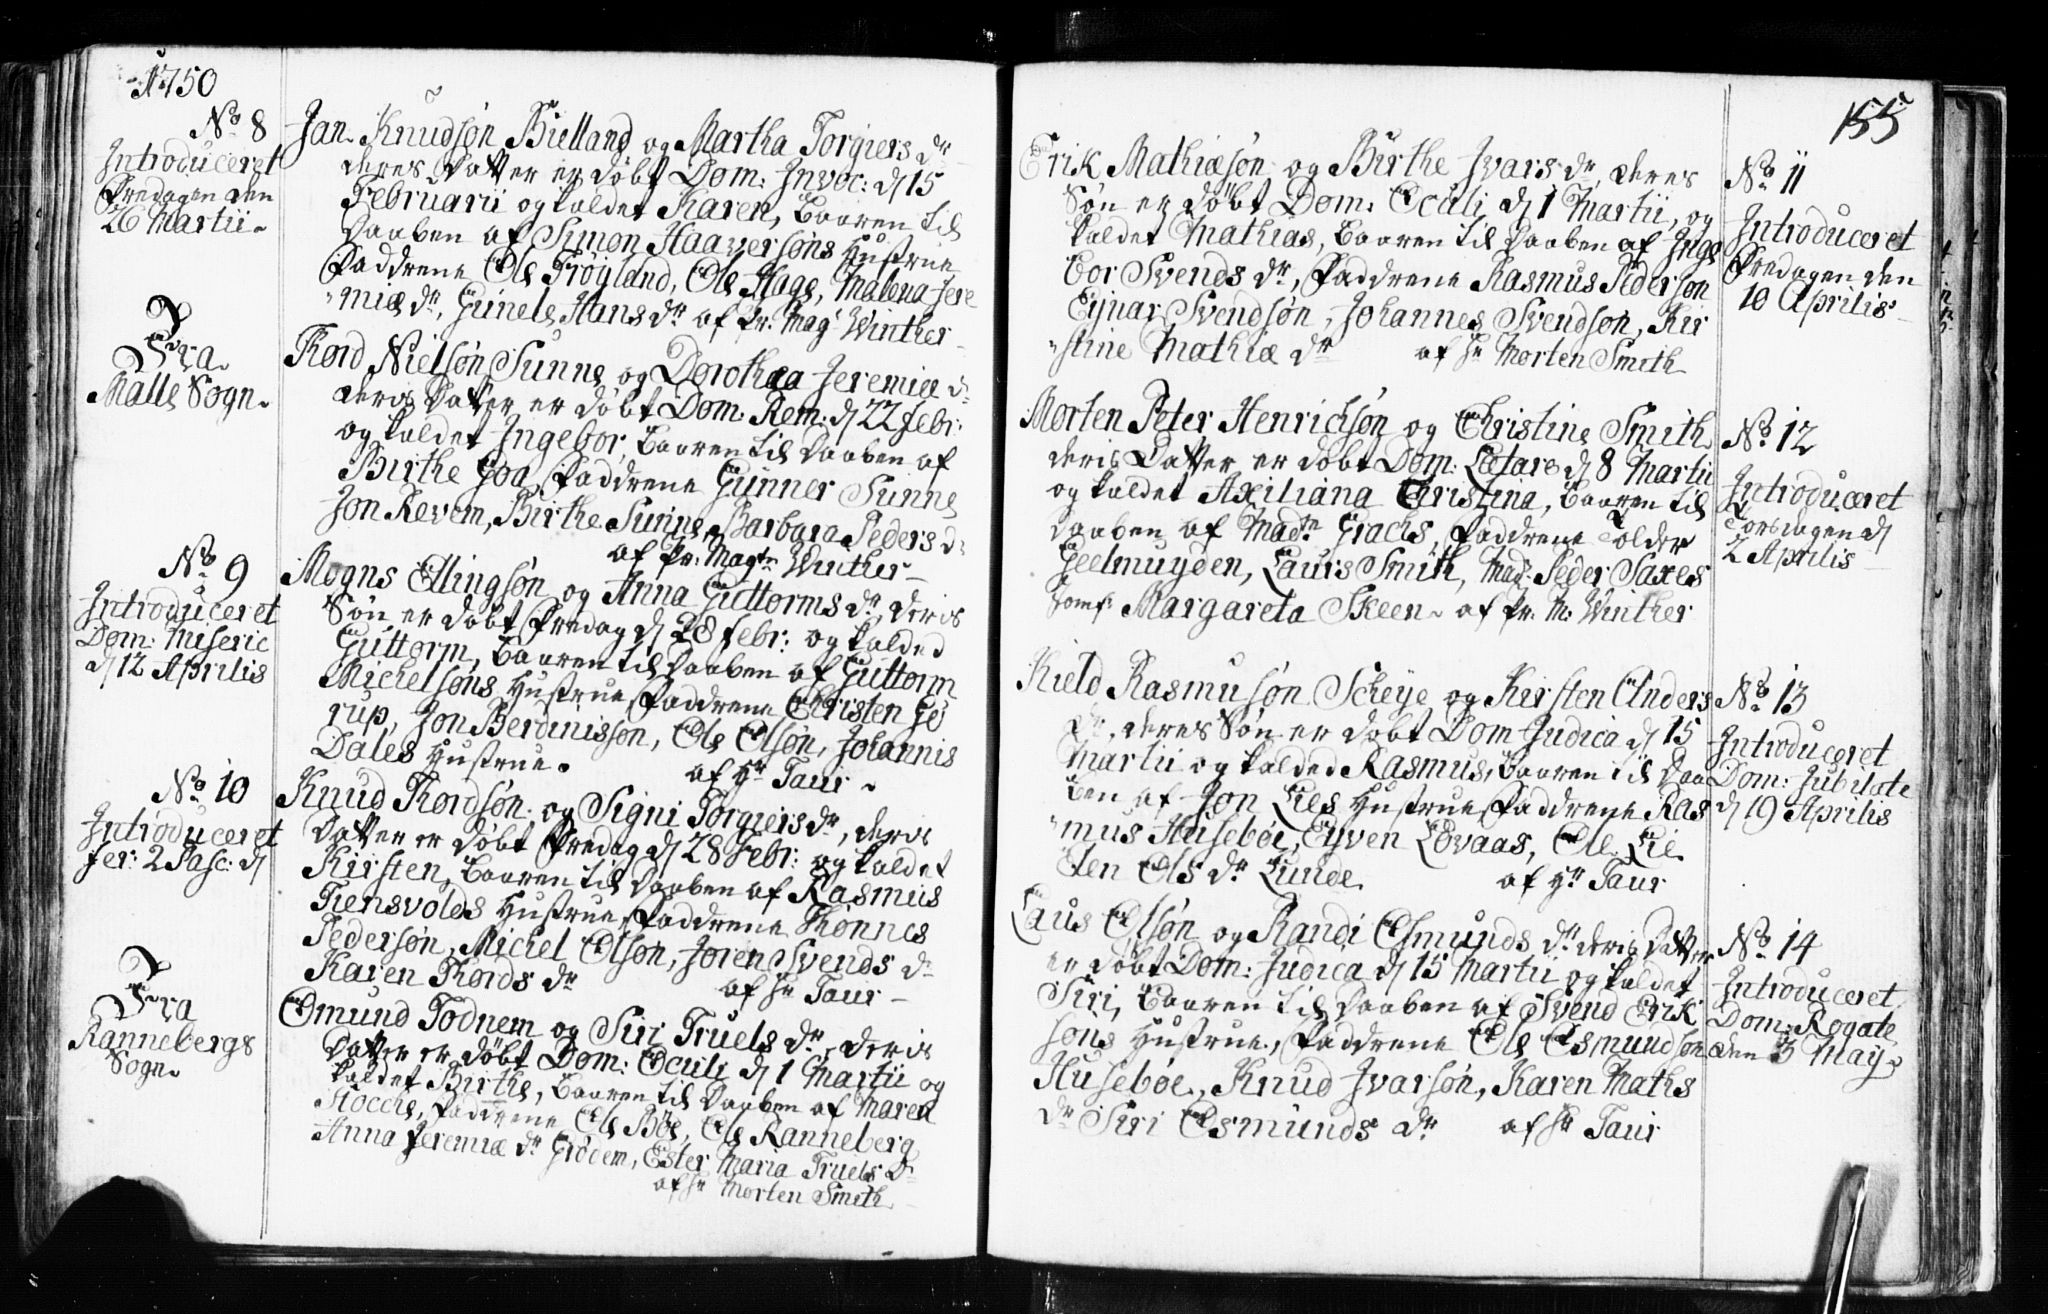 1750
No 8
Introduceret
Fredagen den
26 Martii
Jan Knudsøn Bielland og Martha Torgiers dr
deres Datter er døbt Dom: Invoc: d 15
Februarii og kaldet Karen, baaren til
Daaben af Simon Haaversøns Hustrue
Faddrene Ole Frøyland, Ole Hage, Malena Jere
miæ dr, Gunele Hans dr af Pr: Magr Winther
Fra
Malle Sogn
Thord Nielsøn Sunne og Dorothea Jeremiæ dr
deris Datter er døbt Dom: Rem: d 22 febr:
og kaldet Ingebor, baaren til Daaben af
Birthe Goa, Faddrene Gunner Sunne
Jon Revem, Birthe Sunne, Barbara Peders dr
af Pr: Magr Winther
No 9
Introduceret
Dom: Miseric
d 12 Aprilis
Mogns Ellingsøn og Anna Guttorms dr, deris
Søn er døbt Fredag d 28 febr: og kalded
Guttorm, baaren til Daaben af Guttorm
Michelsøns Hustrue, Faddrene Christen Jé
rup, Jon Berdinissøn, Ole Olsøn, Johannis
Dales Hustrue. af Hr Taur
No 10
Introduceret
fer: 2 Pasc: d
Knud Thordsøn og Signi Torgiers dr, deris
Datter er døbt Fredag d 28 Febr: og kaldet
Kirsten, baaren til Daaben af Rasmus
Tiensvolds Hustrue, Faddrene Thønnes
Pedersøn, Michel Olsøn, Joren Svends dr
Karen Thords dr af Hr Taur
Fra
Rannebergs
Sogn
Omund Todnem og Siri Truels dr, deris
Datter er døbt Dom: Oculi d 1 Martii og
kaldet Birthe, baaren til Daaben af Maren
Stocche, Faddrene Ole Bøe, Ole Ranneberg
Anna Jeremiæ dr Grødem, Ester Maria Truels dr
af Hr Morten Smith
155
Erik Mathiæsøn og Birthe Ivars dr, deres
Søn er døbt Dom: Oculi d 1 Martii, og
kaldet Mathias, baaren til Daaben af Inge
bor Svends dr, Faddrene Rasmus Pedersøn
Ejnar Svendsøn, Johannes Svendsøn, Kir
stine Mathiæ dr af Hr Morten Smith
No 11
Introduceret
Fredagen den
10 Aprilis
Morten Peter Henrichsøn og Christine Smith
deris Datter er døbt Dom: Lætare d 8 Martii
og kaldet Axiliana Christina, baaren til
Daaben af Madme Grachs, Faddrene Tolder
Geelmuyden, Laurs Smith, Mad: Peder Saxes
Jomf: Margareta Skeen af Pr: M: Winther
No 12
Introduceret
Torsdagen d
2 Aprilis
Kield Rasmusøn Scheye og Kirsten Anders
dr, deres Søn er døbt Dom Judica d 15
Martii og kalded Rasmus, baaren til Daa
ben af Jon Lies Hustrue, Faddrene Ras
mus Husebøe, Eyven Lovaas, Ole Lie
ten Ols dr Lunde af Hr Taur
No 13
Introduceret
Dom: Jubilate
d 19 Aprilis
Laus Olsøn og Randi Osmunds dr deris Datter
er døbt Dom: Judica d 15 Martii og kaldet
Siri, baaren til Daaben af Svend Erik
søns Hustrue, Faddrene Ole Osmundsøn
Husebøe, Knud Ivarsøn, Karen Maths
dr Siri Osmunds dr af Hr Taur
No 14
Introduceret
Dom: Rogate
den 3 May